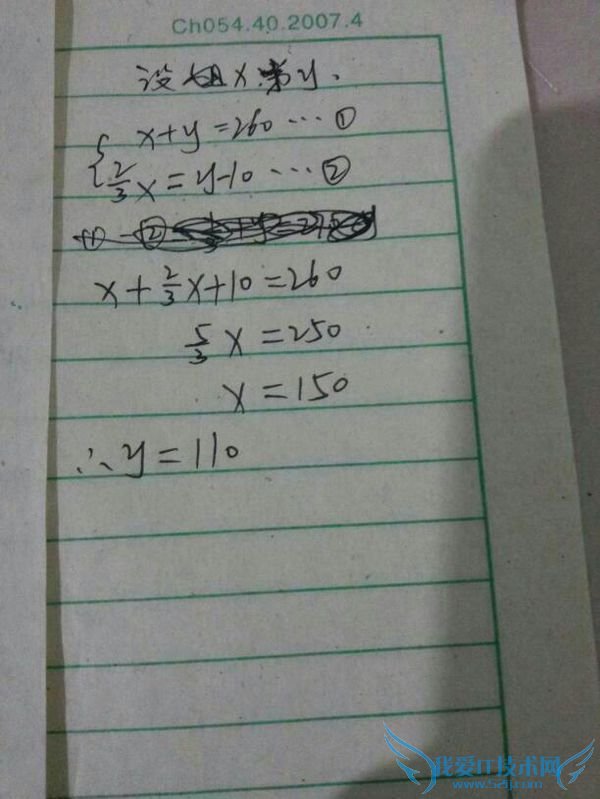 Ch054.40.2007.4
设姐x.弟y.
{ x+y=260…①
2/3x=y-10…②
①-②
x+2/3x+10=260
5/3x=250
x=150
∴y=110
我爱IT技术网
www.52ij.com